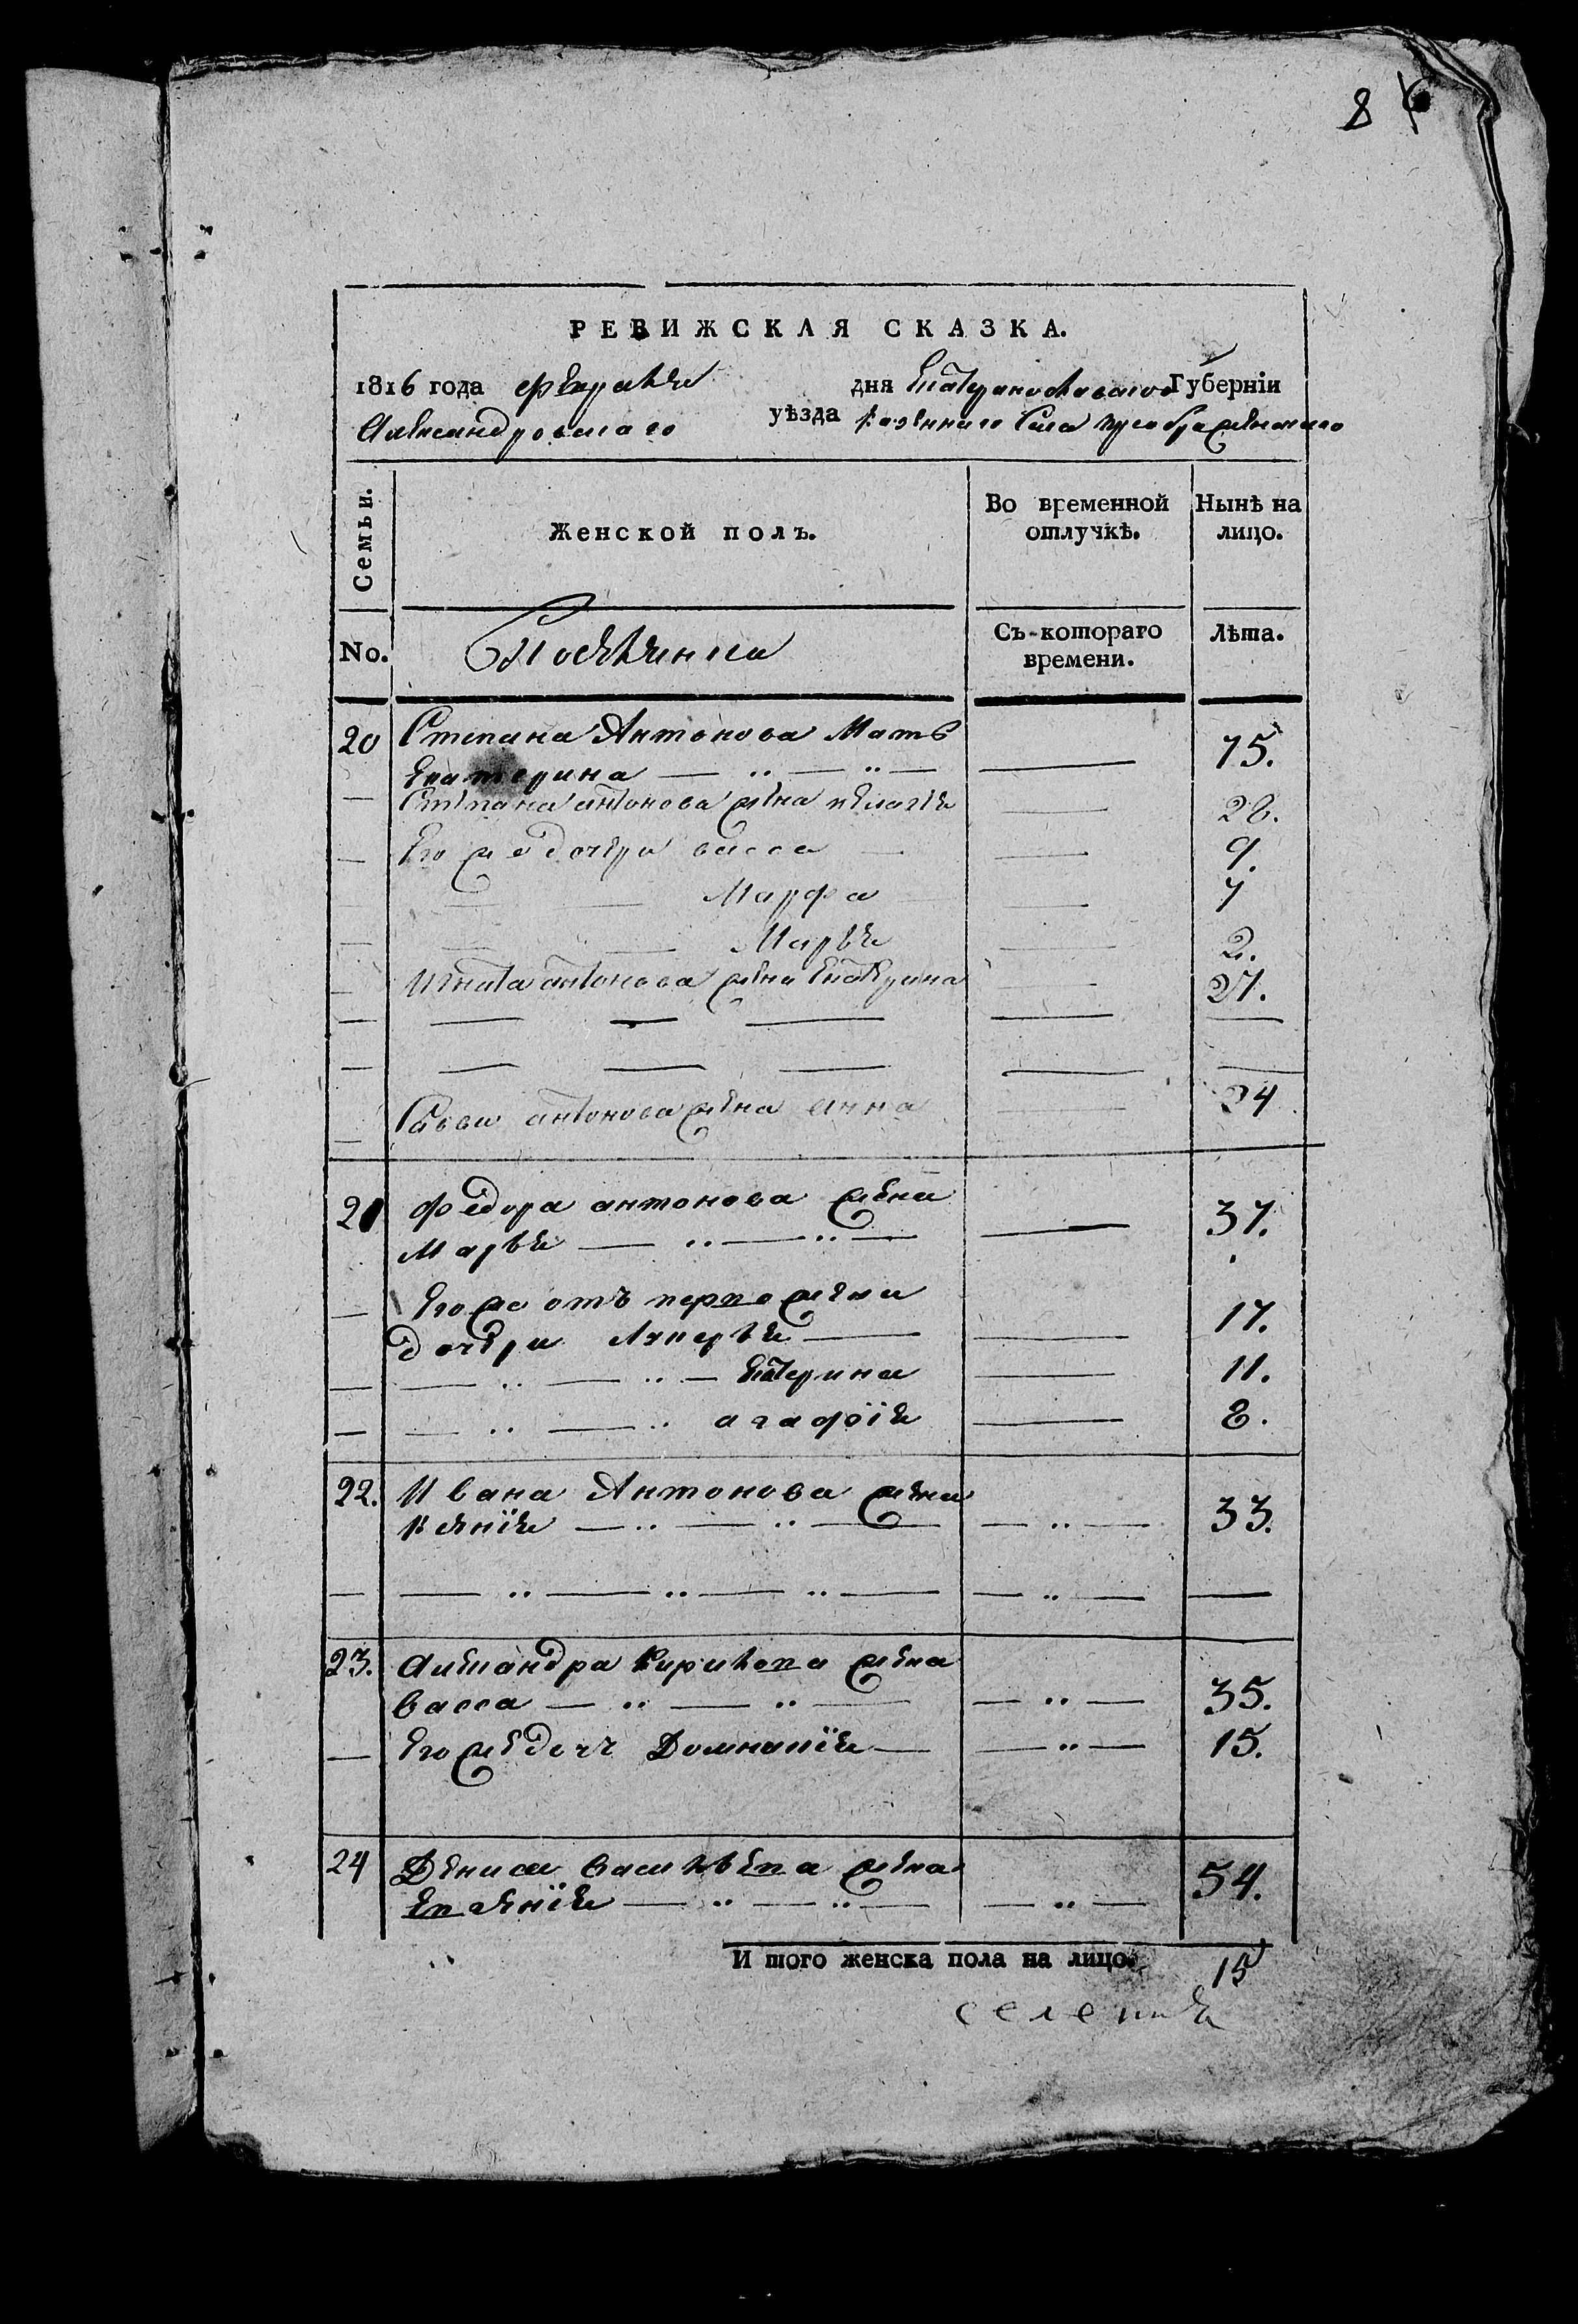 8
РЕВИЖСКАЯ СКАЗКА.
1816 года февраля дня Екатеринославской Губернiи
Александровскаго уѣзда казеннаго села преображенскаго
Семьи. Женской полъ. Во временной отлучкѣ. Нынѣ на лицо.
No. Съ котораго времени. Лѣта.
20 Степана Антонова Мать
Екатерина — „ — „ — 75.
Степана антонова жена пелагея 28.
Его же дочери васса 9.
Марфа 7
Марья 2.
Игната антонова жена Екатерина 27.
Савы антонова жена анна 24
21 Федора антонова жена
Марья — „ — „ — 37.
Его же отъ перво жены
дочери Лукерья 17.
— „ — „ — Екатерина 11.
— „ — „ агафiя 8.
22. Ивана Антонова жена
Ксенiя — „ — „ — 33.
23. Александра Кирилова жена
Васса — „ — „ — 35.
Его же дочь Домникiя 15.
24 Дениса васильева жена
Евгенiя — „ — „ — 54.
И того женска пола на лицо. 15